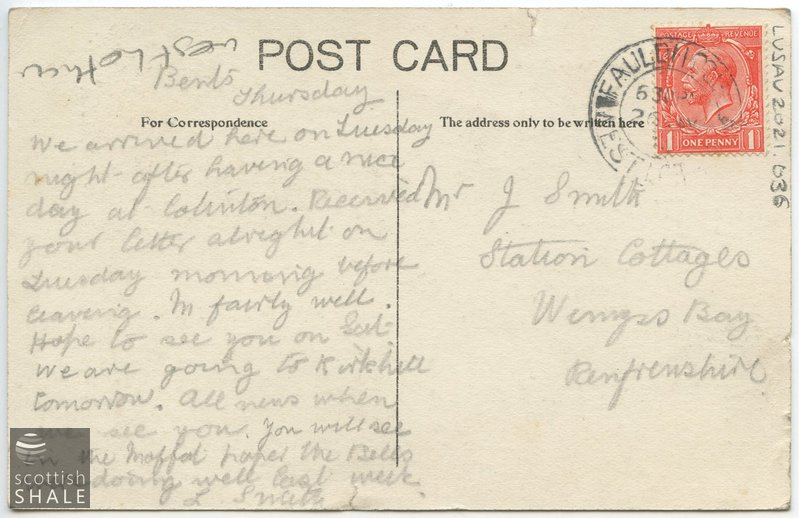 West Lothian
POST CARD
Bents
Thursday
For Correspondence
The address only to be written here
We arrived here on Tuesday
night after having a nice
day at Colinton. Received
your letter alright on
Tuesday morning before
leaving. M fairly well.
Hope to see you on Sat.
We are going to Kirkhill
tomorrow. All news when
we see you. You will see
in the Moffat paper the Bells
doing well last week
L Smith
Mr J Smith
Station Cottages
Wemyss Bay
Renfrewshire
FAULDHOUSE
POSTAGE REVENUE
1 ONE PENNY 1
LVSAV2021.036
scottish
SHALE